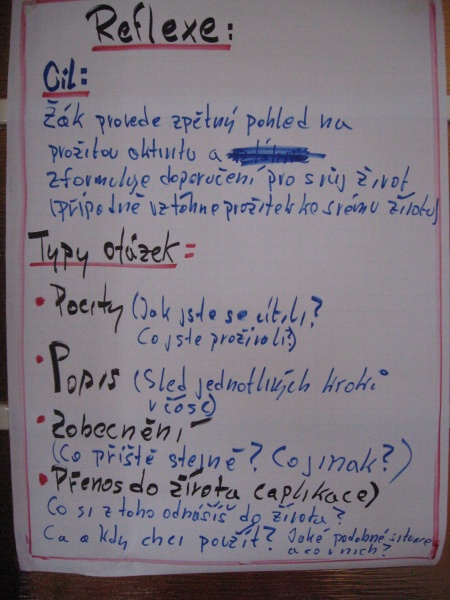 Reflexe:
Cíl:
Žák provede zpětný pohled na
prožitou aktivitu a
zformuluje doporučení pro svůj život
(případně vztáhne prožitek ke svému životu)
Typy otázek:
• Pocity (Jak jste se cítili?
Co jste prožívali?)
• Popis (Sled jednotlivých kroků
v čase)
• Zobecnění
(Co příště stejně? Co jinak?)
• Přenos do života (aplikace)
Co si z toho odnášíš do života?
Co a kdy chci použít? Jaké podobné situace
a co v nich?